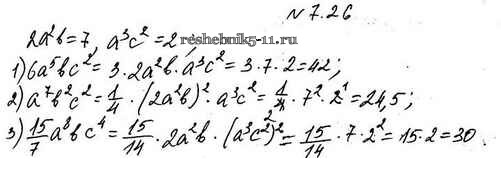 № 7.26
2a²b = 7, a³c² = 2,
reshebnik5-11.ru
1) 6a⁵bc² = 3 · 2a²b · a³c² = 3 · 7 · 2 = 42;
2) a⁷b²c² = 1/4 · (2a²b)² · a³c² = 1/4 · 7² · 2¹ = 24,5;
3) 15/7 a⁸bc⁴ = 15/14 · 2a²b · (a³c²)² = 15/14 · 7 · 2² = 15 · 2 = 30.